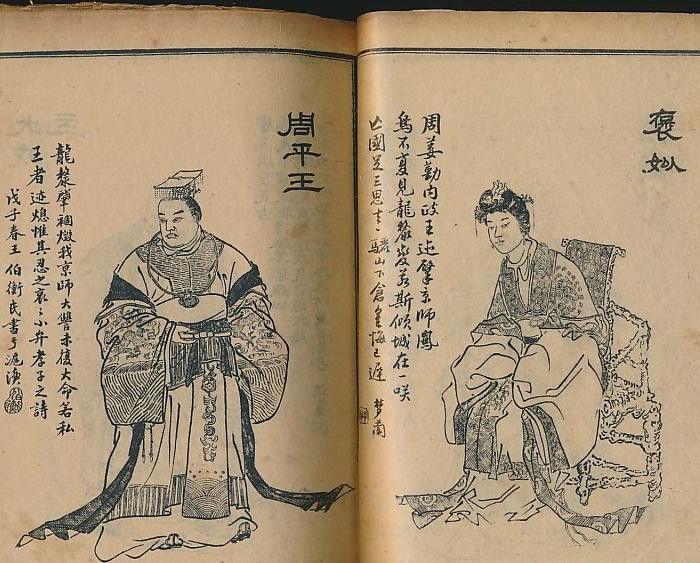 褒姒
周姜勤内政王迹肇京師鳳
鳥不复見龍漦變若斯傾城在一咲
亡國足三思去〻驪山下倉皇悔已遲 夢蘭
周平王
龍漦肇禍燬我京師大讐未復大命若私
王者迹熄惟其忍之哀〻小弁孝子之詩
戊子春王伯衡氏書于滬瀆